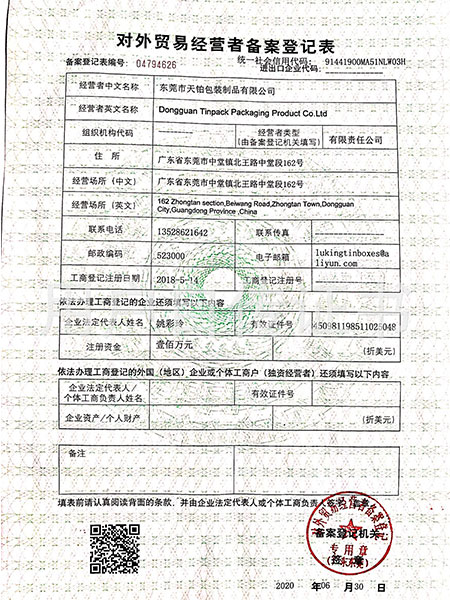 对外贸易经营者备案登记表
备案登记表编号: 04794626
统一社会信用代码: 91441900MA51NLW03H
进出口企业代码:
经营者中文名称 东莞市天铂包装制品有限公司
经营者英文名称 Dongguan Tinpack Packaging Product Co.Ltd
组织机构代码 ---------- 经营者类型 (由备案登记机关填写) 有限责任公司
住 所 广东省东莞市中堂镇北王路中堂段162号
经营场所（中文） 广东省东莞市中堂镇北王路中堂段162号
经营场所（英文） 162 Zhongtan section,Beiwang Road,Zhongtan Town,Dongguan
City,Guangdong Province ,China
联系电话 13528621642 联系传真 ----------
邮政编码 523000 电子邮箱 lukingtinboxes@a
liyun.com
工商登记注册日期 2018-5-14 工商登记注册号 ----------
依法办理工商登记的企业还须填写以下内容
企业法定代表人姓名 姚彩玲 有效证件号 450981198511025048
注册资金 壹佰万元 (折美元)
依法办理工商登记的外国（地区）企业或个体工商户（独资经营者）还须填写以下内容
企业法定代表人/
个体工商负责人姓名 有效证件号
企业资产/个人财产 (折美元)
备注
填表前请认真阅读背面的条款，并由企业法定代表人或个体工商负责人签字、盖章。
对外贸易经营者备案登记
备案登记机关
专用章
(签 章)
2020 年 06 月 30 日